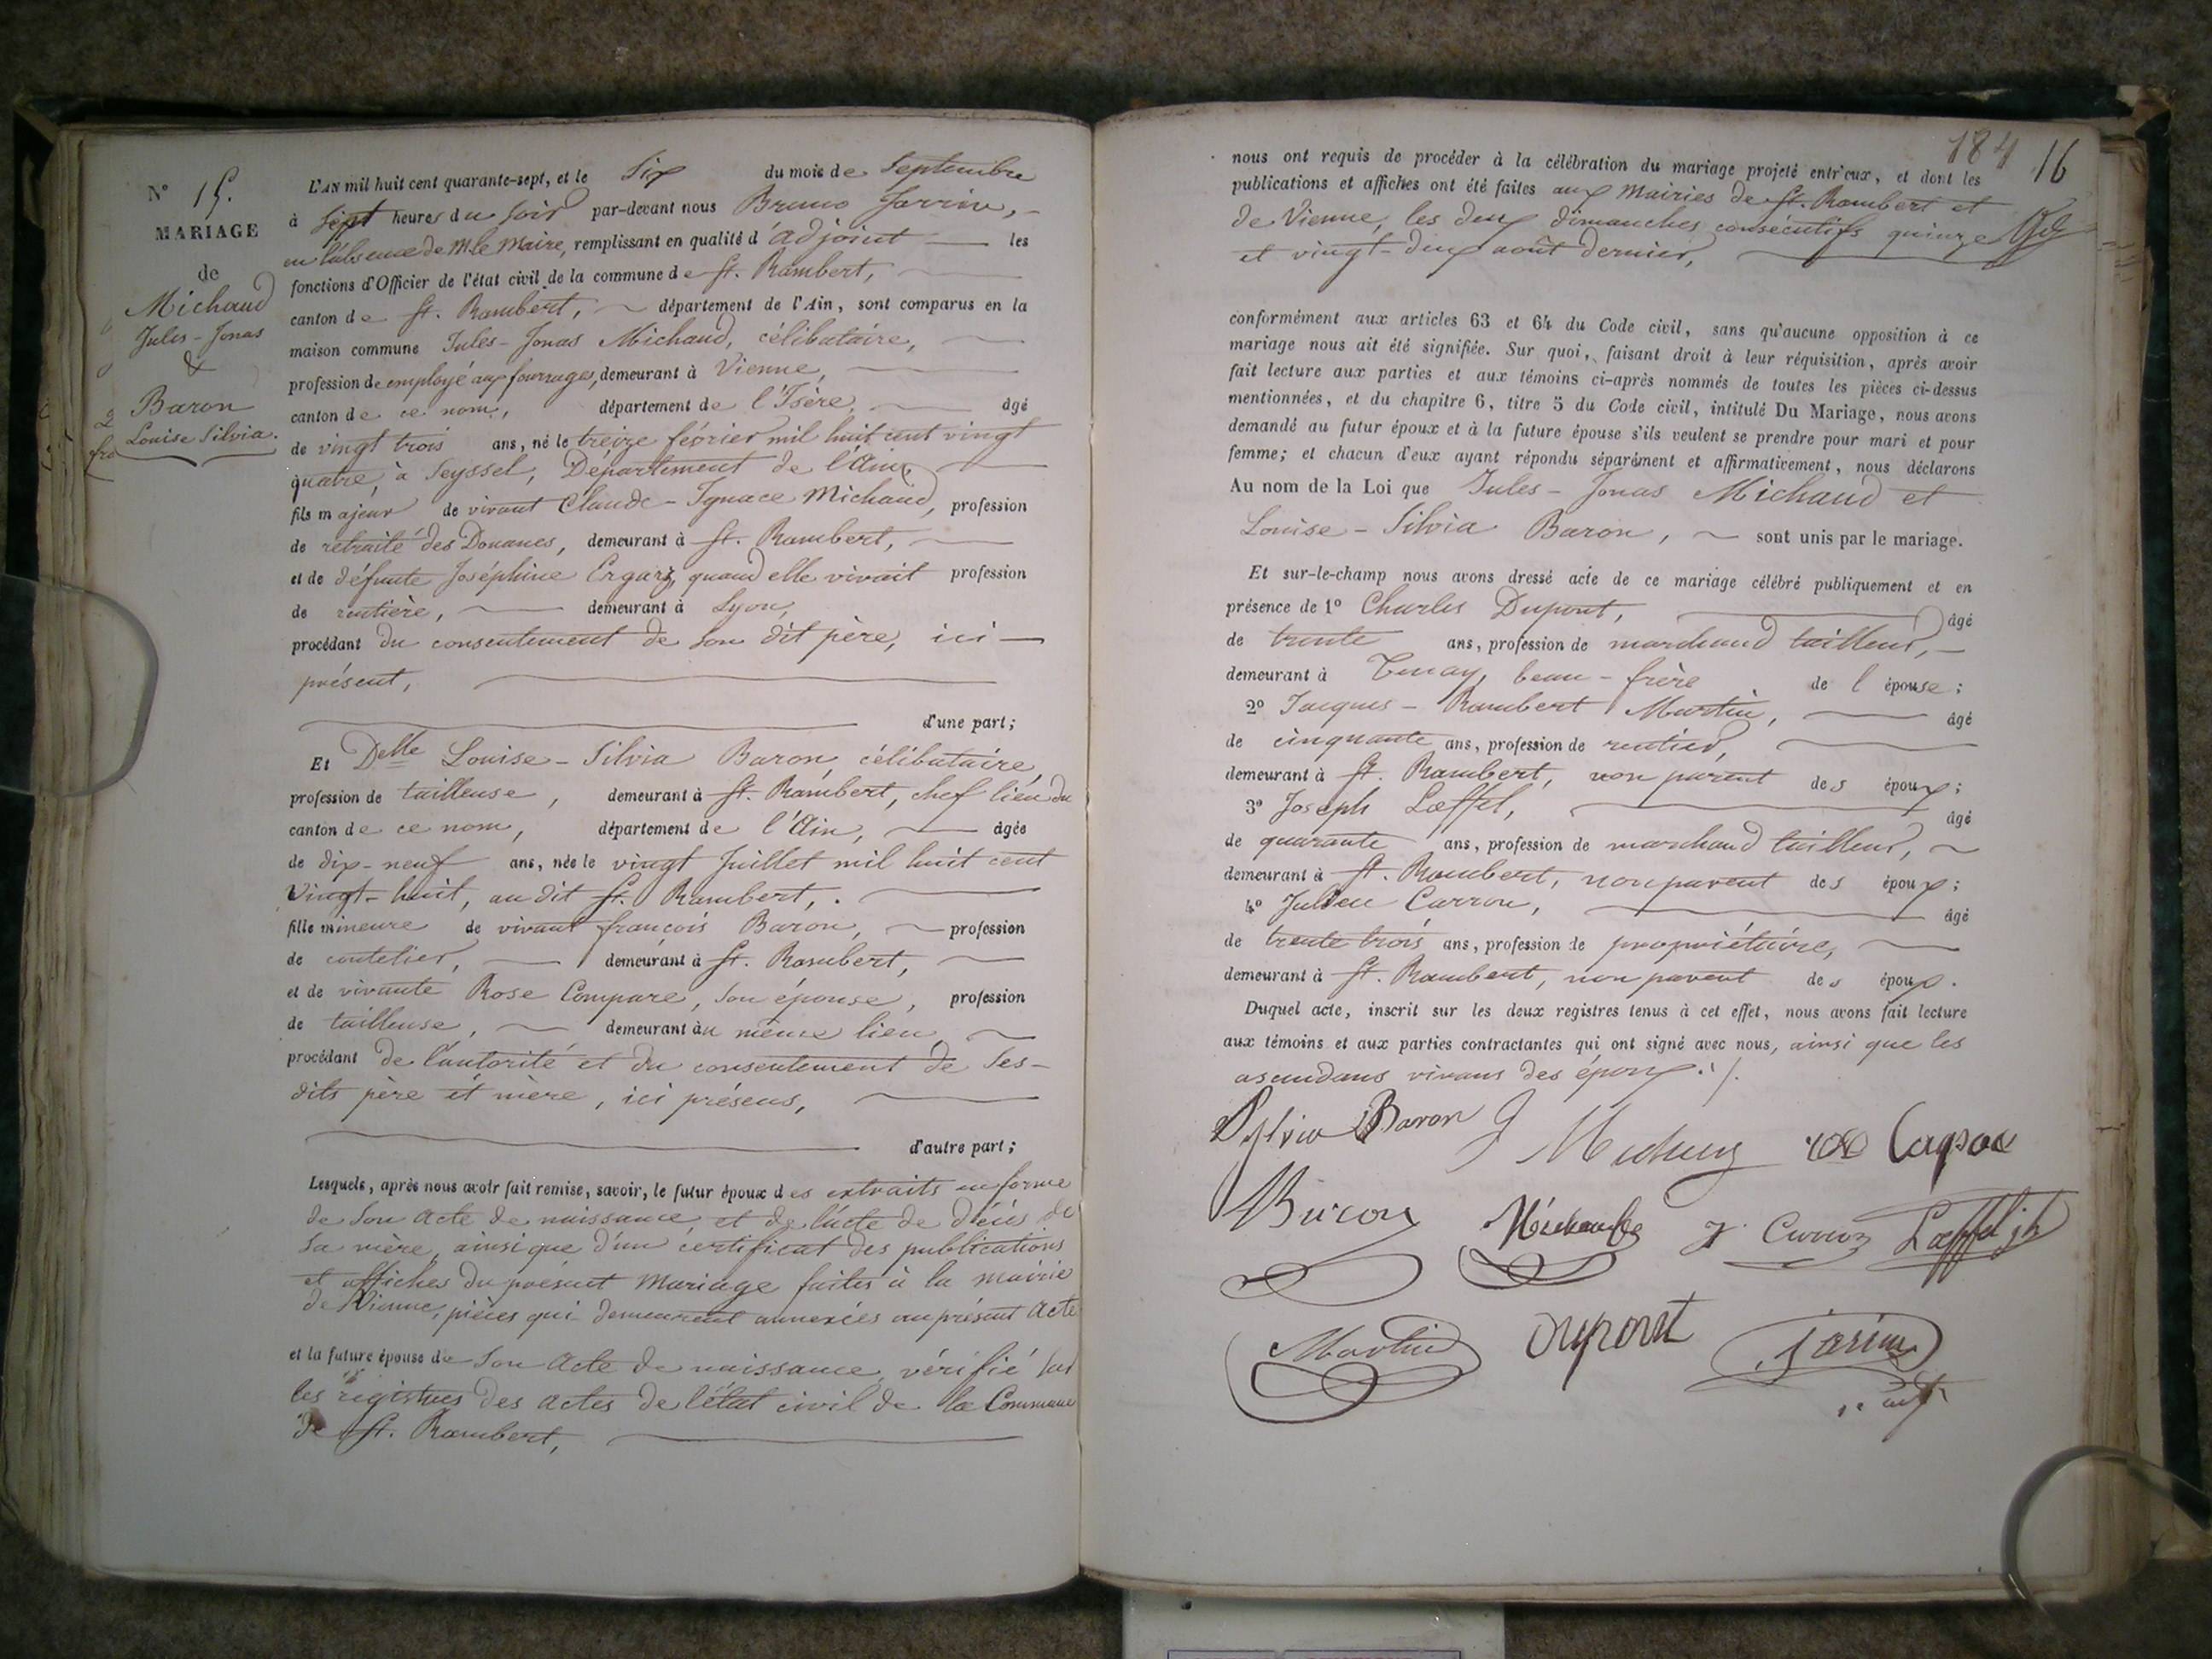 N° 15.
MARIAGE
de
Michaud
Jules-Jonas
&
Baron
Louise Silvia.
L'AN mil huit cent quarante-sept, et le Six du mois de Septembre
à Sept heures du Soir par-devant nous Bruno Jarrin,
en l'absence de M. le Maire, remplissant en qualité d'adjoint les
fonctions d'Officier de l'état civil de la commune de St. Rambert,
canton de St. Rambert, département de l'Ain, sont comparus en la
maison commune Jules-Jonas Michaud, célibataire,
profession de employé aux fourrages, demeurant à Vienne,
canton de ce nom, département de l'Isère, âgé
de vingt trois ans, né le treize février mil huit cent vingt
quatre, à Seyssel, Département de l'Ain,
fils majeur de vivant Claude-Ignace Michaud, profession
de retraité des Douanes, demeurant à St. Rambert,
et de défunte Joséphine quand elle vivait profession
de rentière, demeurant à Lyon,
procédant du consentement de son dit père, ici
présent,
d'une part;
Et Delle Louise-Silvia Baron, célibataire,
profession de tailleuse, demeurant à St. Rambert, chef lieu du
canton de ce nom, département de l'Ain, âgée
de dix-neuf ans, née le vingt Juillet mil huit cent
vingt-huit, au dit St. Rambert,
fille mineure de vivant françois Baron, profession
de coutelier, demeurant à St. Rambert,
et de vivante Rose Compare, son épouse, profession
de tailleuse, demeurant au même lieu,
procédant de l'autorité et du consentement de ses-
dits père et mère, ici présens,
d'autre part;
Lesquels, après nous avoir fait remise, savoir, le futur époux des extraits en forme
de son acte de naissance, et de l'acte de décès de
sa mère, ainsi que d'un certificat des publications
et affiches du présent mariage faites à la mairie
de Vienne, pièces qui demeurent annexées au présent acte
et la future épouse de son acte de naissance, vérifié sur
les registres des actes de l'état civil de la Commune
de St. Rambert,
184 16
nous ont requis de procéder à la célébration du mariage projeté entr'eux, et dont les
publications et affiches ont été faites aux Mairies de St. Rambert et
de Vienne, les deux dimanches consécutifs quinze
et vingt-deux août dernier,
conformément aux articles 63 et 64 du Code civil, sans qu'aucune opposition à ce
mariage nous ait été signifiée. Sur quoi, faisant droit à leur réquisition, après avoir
fait lecture aux parties et aux témoins ci-après nommés de toutes les pièces ci-dessus
mentionnées, et du chapitre 6, titre 5 du Code civil, intitulé Du Mariage, nous avons
demandé au futur époux et à la future épouse s'ils veulent se prendre pour mari et pour
femme; et chacun d'eux ayant répondu séparément et affirmativement, nous déclarons
Au nom de la Loi que Jules-Jonas Michaud et
Louise-Silvia Baron, sont unis par le mariage.
Et sur-le-champ nous avons dressé acte de ce mariage célébré publiquement et en
présence de 1° Charles Dupont, âgé
de trente ans, profession de marchand tailleur,
demeurant à Tenay, beau-frère de l'épouse;
2° Jacques-Rambert Martin, âgé
de cinquante ans, profession de rentier,
demeurant à St. Rambert, non parent des époux;
3° Joseph Lœffel, âgé
de quarante ans, profession de marchand tailleur,
demeurant à St. Rambert, non parent des époux;
4° Julien Carron, âgé
de trente trois ans, profession de propriétaire,
demeurant à St. Rambert, non parent des époux.
Duquel acte, inscrit sur les deux registres tenus à cet effet, nous avons fait lecture
aux témoins et aux parties contractantes qui ont signé avec nous, ainsi que les
ascendans vivans des époux ./.
Sylvia Baron J Michaud
Michaud J. Carron Lœffel jh
Martin Dupont Jarrin